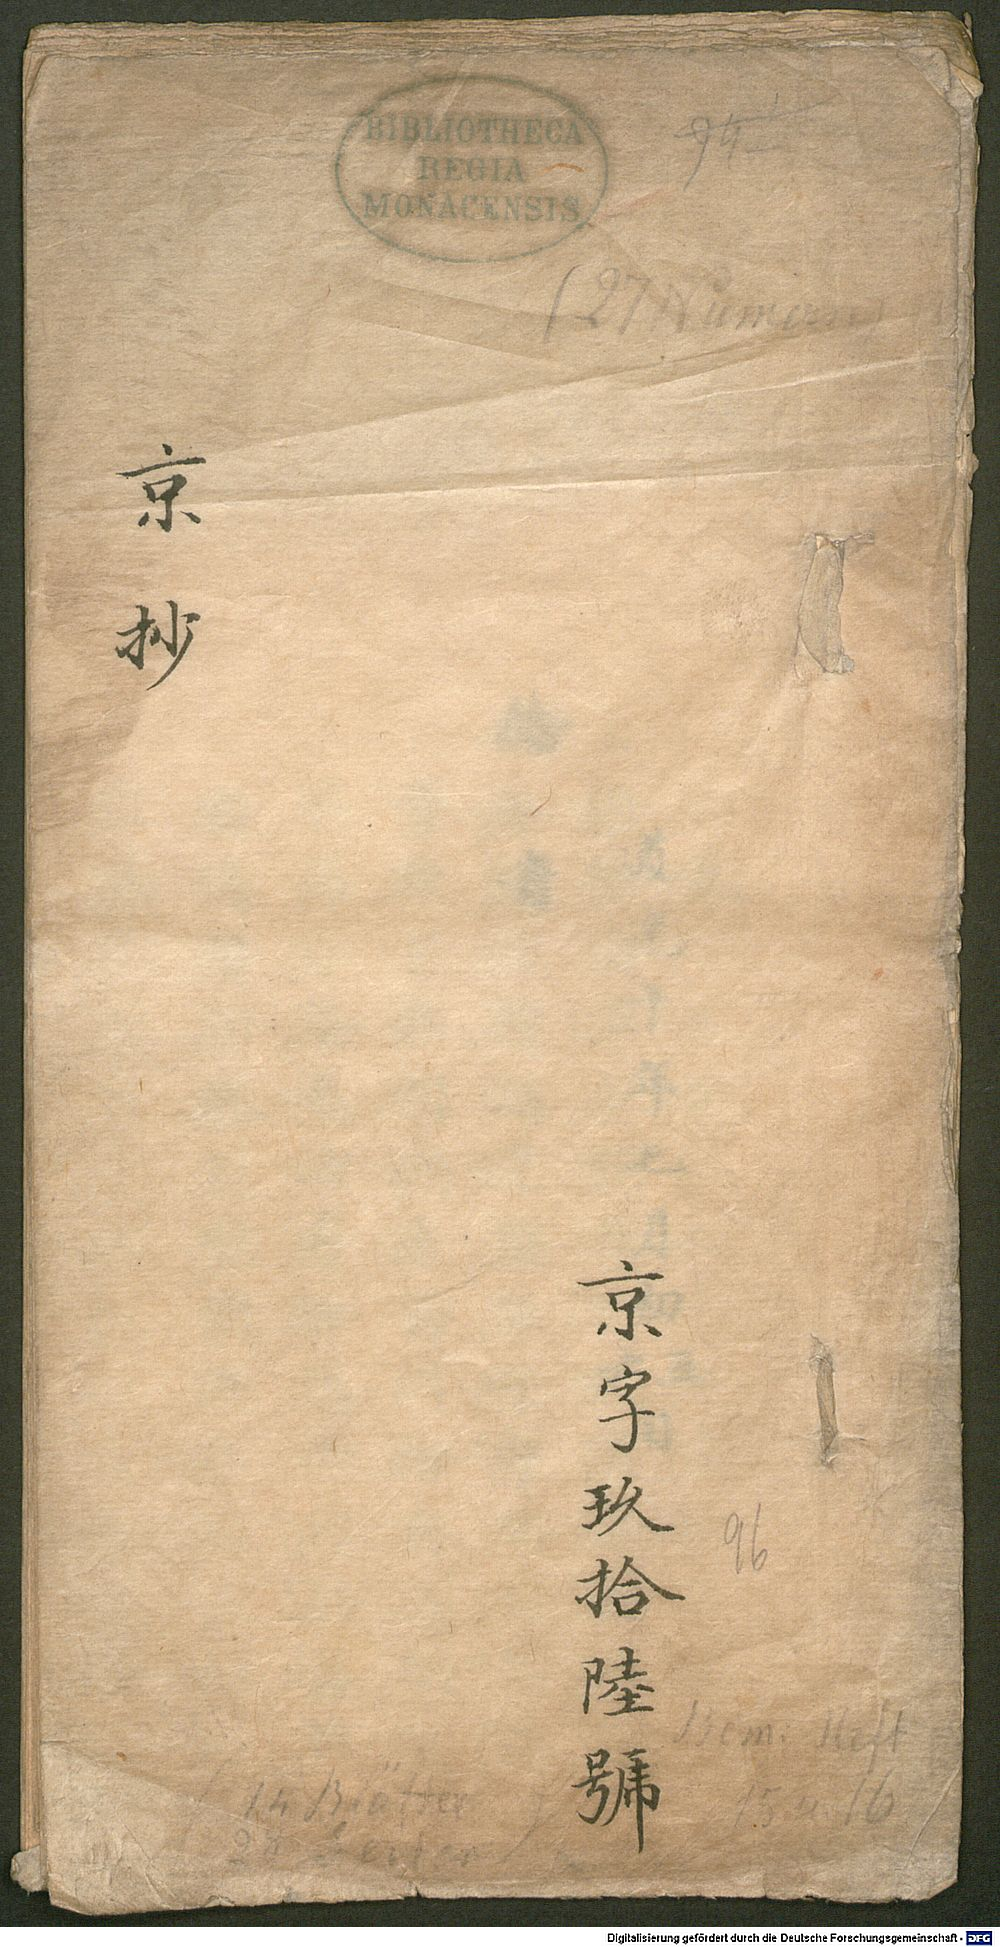 BIBLIOTHECA
REGIA
MONACENSIS
(27 Numern)
京抄
京字玖拾陸號
96
Bem. Heft
15 u. 16
14 Blätter
Digitalisierung gefördert durch die Deutsche Forschungsgemeinschaft - DFG